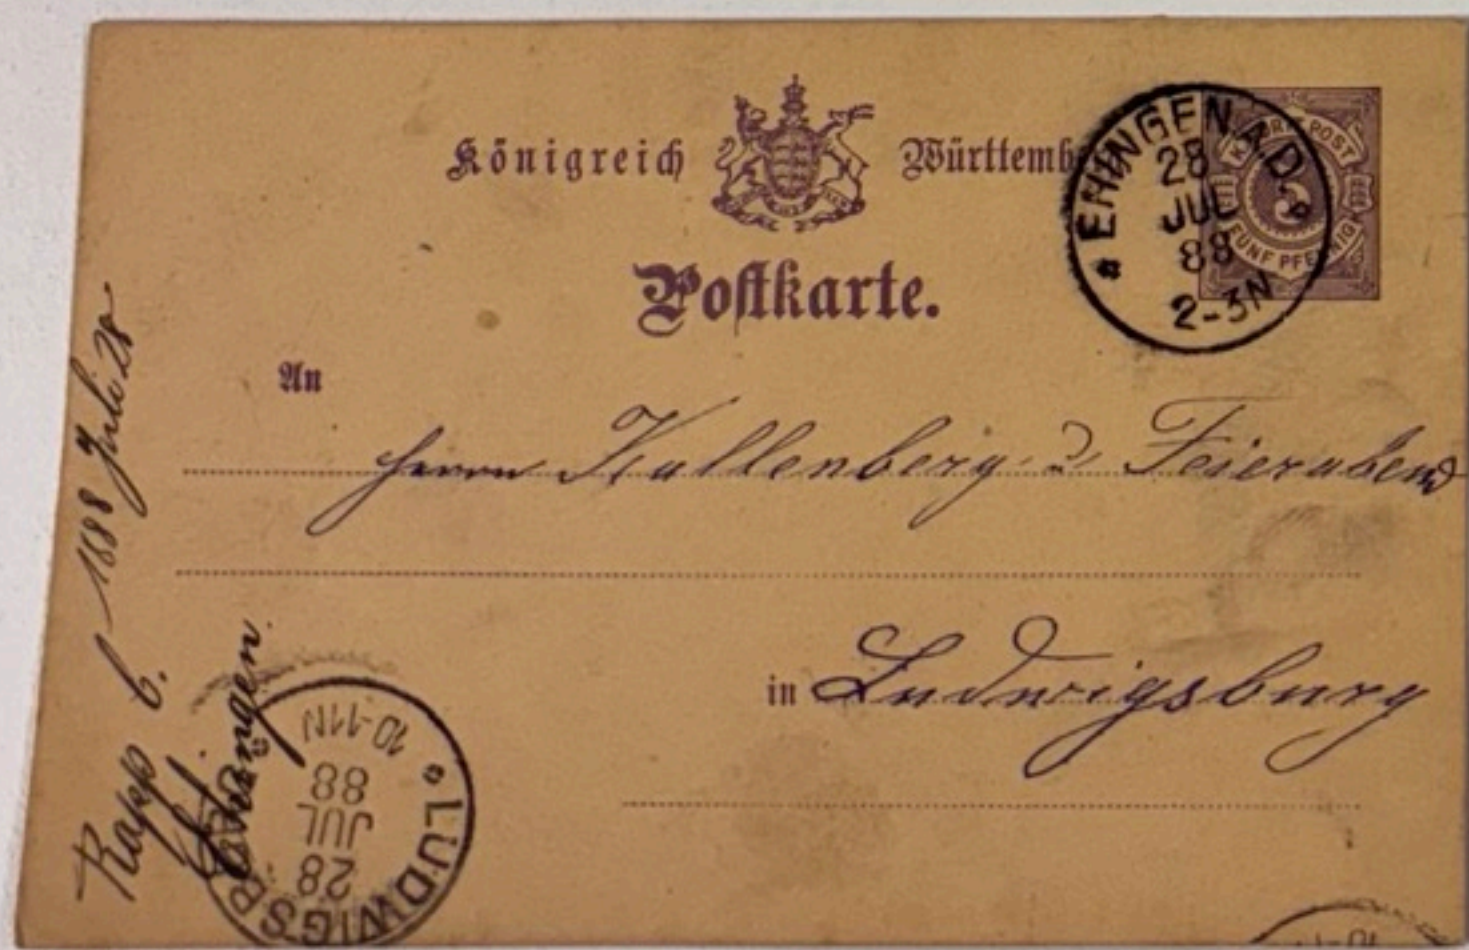 Königreich Württemb
Postkarte.
EHINGEN A.D.
28
JUL
88
2-3N
K. WÜRTT. POST
5
FÜNF PFENNIG
An
Herrn Kallenberg u. Feierabend
in Ludwigsburg
Rapp 6. 1888 Juli 28.
Ehingen.
LUDWIGSBURG
28
JUL
88
10-11N